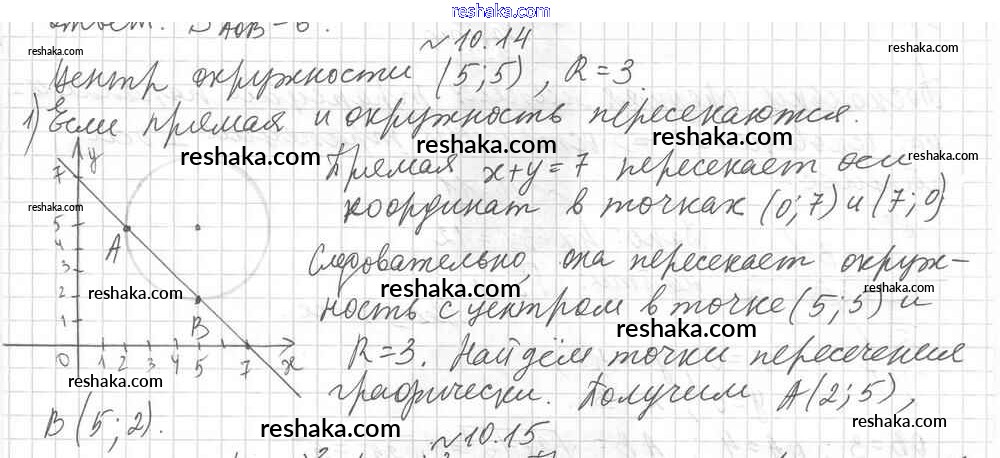 reshaka.com
ответ. S AOB = 6.
№10.14
reshaka.com
Центр окружности (5;5), R=3.
reshaka.com
reshaka.com
1) Если прямая и окружность пересекаются.
reshaka.com
reshaka.com
reshaka.com
Прямая x+y=7 пересекает оси
reshaka.com
координат в точках (0;7) и (7;0)
reshaka.com
Следовательно, она пересекает окруж-
reshaka.com
reshaka.com
reshaka.com
ность с центром в точке (5;5) и
reshaka.com
R=3. Найдём точки пересечения
reshaka.com
reshaka.com
графически. Получим A(2;5),
B(5;2).
reshaka.com
reshaka.com
№10.15
y
7
5
4
3
2
1
A
B
0 1 2 3 4 5 7 x